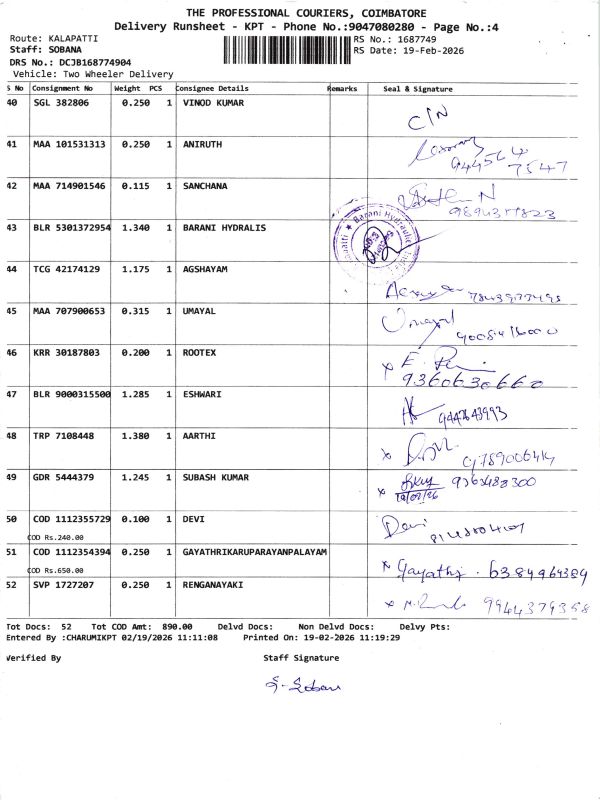 THE PROFESSIONAL COURIERS, COIMBATORE
Delivery Runsheet - KPT - Phone No.:9047080280 - Page No.:4
Route: KALAPATTI
RS No.: 1687749
Staff: SOBANA
RS Date: 19-Feb-2026
DRS No.: DCJB168774904
Vehicle: Two Wheeler Delivery
S No Consignment No Weight PCS Consignee Details Remarks Seal & Signature
40 SGL 382806 0.250 1 VINOD KUMAR
C/N
41 MAA 101531313 0.250 1 ANIRUTH
42 MAA 714901546 0.115 1 SANCHANA
43 BLR 5301372954 1.340 1 BARANI HYDRALIS
Barani Hydraulic
44 TCG 42174129 1.175 1 AGSHAYAM
45 MAA 707900653 0.315 1 UMAYAL
Umayal
46 KRR 30187803 0.200 1 ROOTEX
9360630660
47 BLR 9000315500 1.285 1 ESHWARI
9447643993
48 TRP 7108448 1.380 1 AARTHI
49 GDR 5444379 1.245 1 SUBASH KUMAR
19/02/26
50 COD 1112355729 0.100 1 DEVI
Devi
COD Rs.240.00
51 COD 1112354394 0.250 1 GAYATHRIKARUPARAYANPALAYAM
x Gayathri . 6384964384
COD Rs.650.00
52 SVP 1727207 0.250 1 RENGANAYAKI
9944379358
Tot Docs: 52 Tot COD Amt: 890.00 Delvd Docs: Non Delvd Docs: Delvy Pts:
Entered By :CHARUMIKPT 02/19/2026 11:11:08 Printed On: 19-02-2026 11:19:29
Verified By Staff Signature
S. Soban